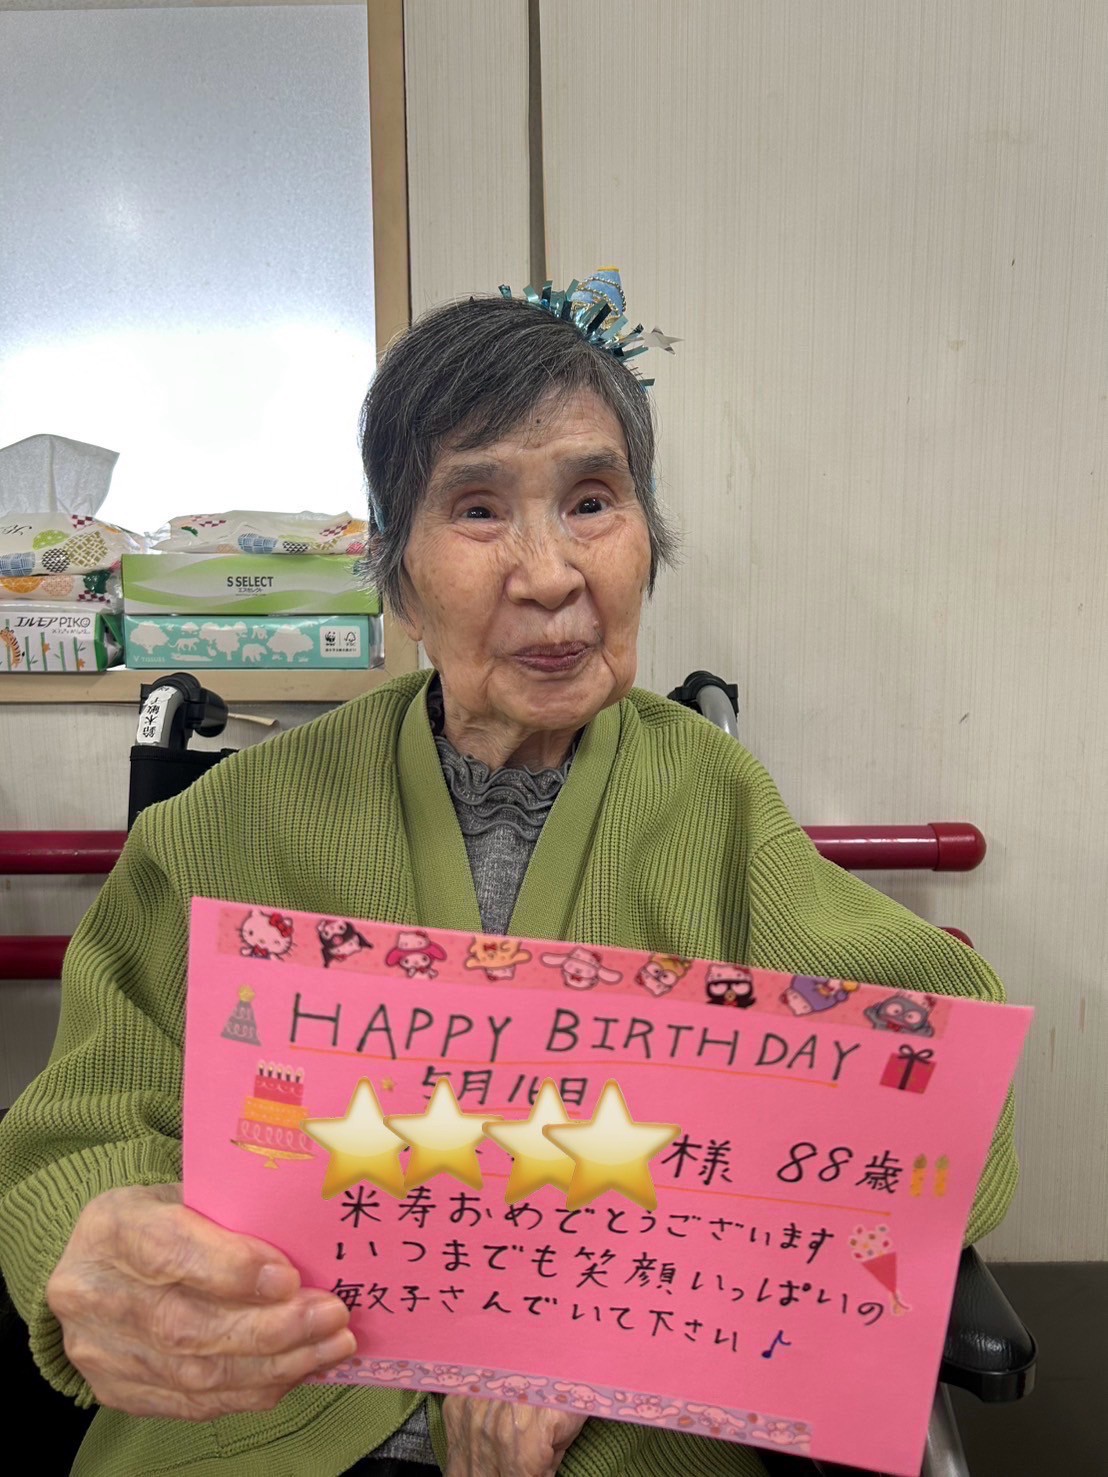 S SELECT
エスセレクト
エルモア PIKO
鈴木敏子
HAPPY BIRTHDAY
5月16日
様 88歳
米寿おめでとうございます
いつまでも笑顔いっぱいの
敏子さんでいて下さい♪